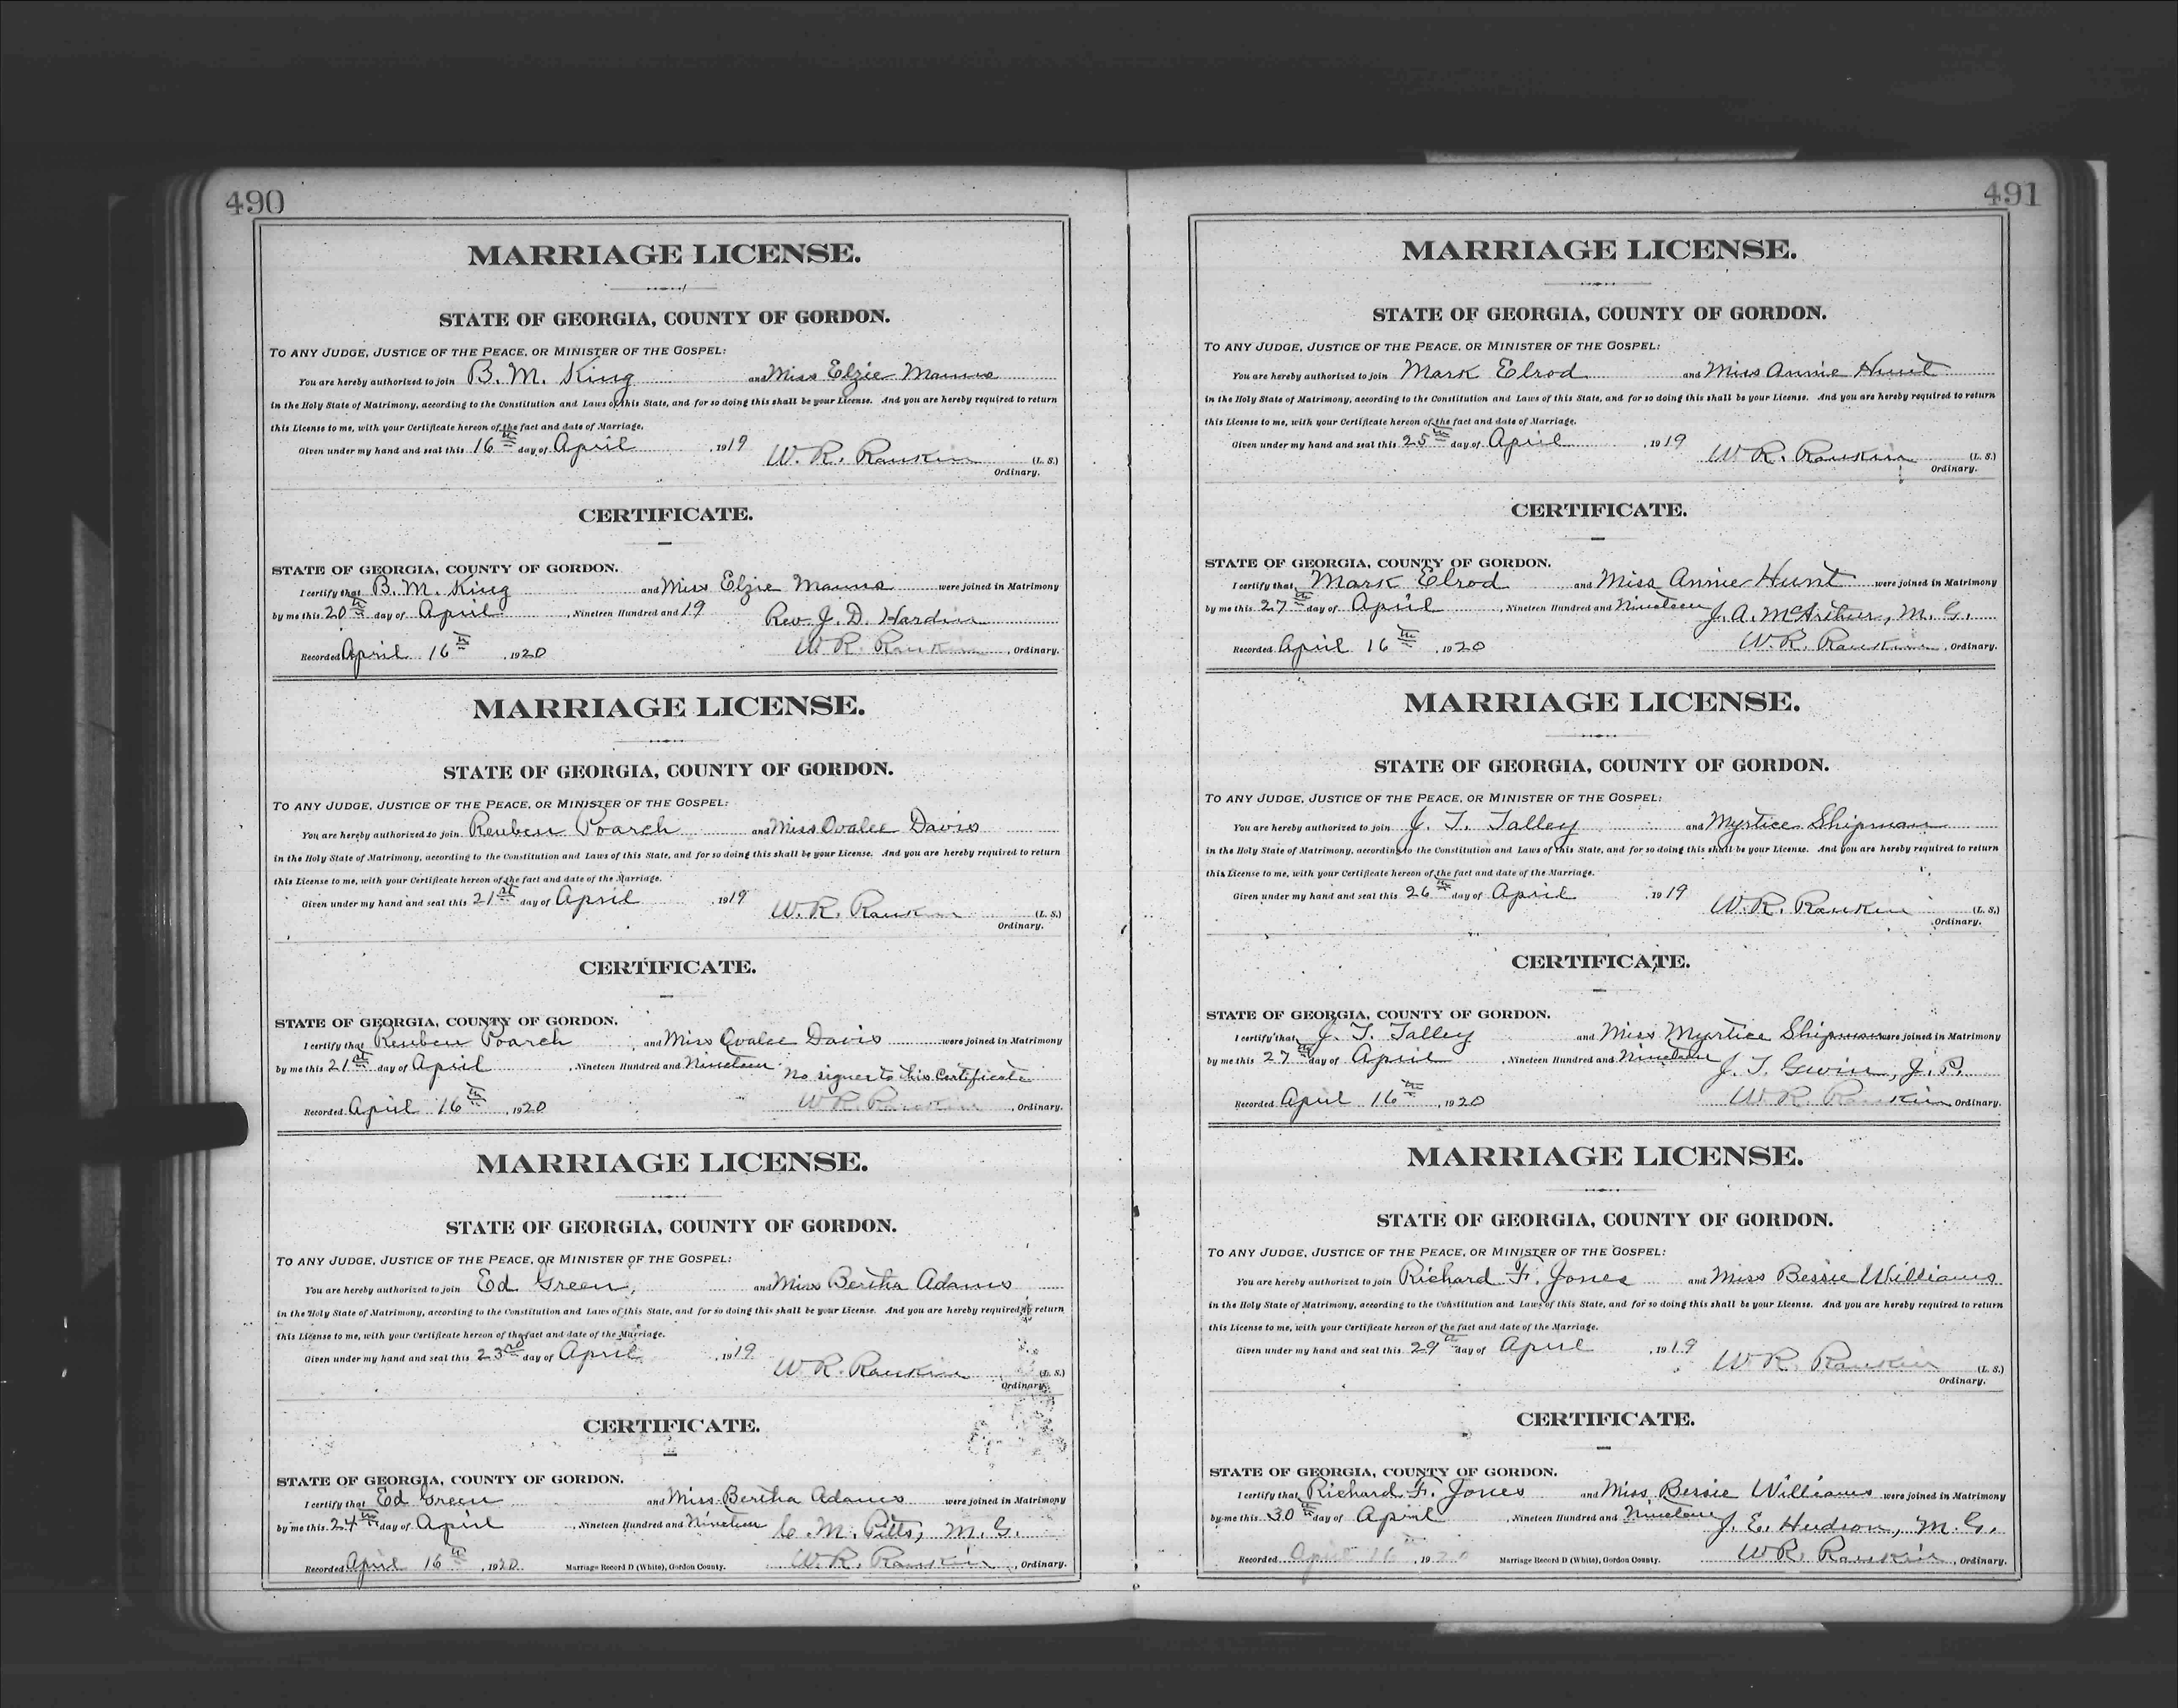 490
MARRIAGE LICENSE.
STATE OF GEORGIA, COUNTY OF GORDON.
TO ANY JUDGE, JUSTICE OF THE PEACE, OR MINISTER OF THE GOSPEL:
You are hereby authorized to join B. M. King and Miss Elzie Manus
in the Holy State of Matrimony, according to the Constitution and Laws of this State, and for so doing this shall be your License. And you are hereby required to return
this License to me, with your Certificate hereon of the fact and date of Marriage.
Given under my hand and seal this 16th day of April, 1919 W. R. Rankin (L. S.)
Ordinary.
CERTIFICATE.
STATE OF GEORGIA, COUNTY OF GORDON.
I certify that B. M. King and Miss Elzie Manus were joined in Matrimony
by me this 20th day of April, Nineteen Hundred and 19 Rev J. D. Hardin
Recorded April 16th, 1920 W. R. Rankin, Ordinary.
MARRIAGE LICENSE.
STATE OF GEORGIA, COUNTY OF GORDON.
TO ANY JUDGE, JUSTICE OF THE PEACE, OR MINISTER OF THE GOSPEL:
You are hereby authorized to join Reuben Poarch and Miss Ovalee Davis
in the Holy State of Matrimony, according to the Constitution and Laws of this State, and for so doing this shall be your License. And you are hereby required to return
this License to me, with your Certificate hereon of the fact and date of the Marriage.
Given under my hand and seal this 21st day of April, 1919 W. R. Rankin (L. S.)
Ordinary.
CERTIFICATE.
STATE OF GEORGIA, COUNTY OF GORDON.
I certify that Reuben Poarch and Miss Ovalee Davis were joined in Matrimony
by me this 21st day of April, Nineteen Hundred and Nineteen No signer to this Certificate
Recorded April 16th, 1920 W. R. Rankin, Ordinary.
MARRIAGE LICENSE.
STATE OF GEORGIA, COUNTY OF GORDON.
TO ANY JUDGE, JUSTICE OF THE PEACE, OR MINISTER OF THE GOSPEL:
You are hereby authorized to join Ed Green, and Miss Bertha Adams
in the Holy State of Matrimony, according to the Constitution and Laws of this State, and for so doing this shall be your License. And you are hereby required to return
this License to me, with your Certificate hereon of the fact and date of the Marriage.
Given under my hand and seal this 23rd day of April, 1919 W. R. Rankin (L. S.)
Ordinary.
CERTIFICATE.
STATE OF GEORGIA, COUNTY OF GORDON.
I certify that Ed Green and Miss Bertha Adams were joined in Matrimony
by me this 24th day of April, Nineteen Hundred and Nineteen C. M. Pitts, M. G.
Recorded April 16th, 1920 Marriage Record D (White), Gordon County. W. R. Rankin, Ordinary.
491
MARRIAGE LICENSE.
STATE OF GEORGIA, COUNTY OF GORDON.
TO ANY JUDGE, JUSTICE OF THE PEACE, OR MINISTER OF THE GOSPEL:
You are hereby authorized to join Mark Elrod and Miss Annie Hunt
in the Holy State of Matrimony, according to the Constitution and Laws of this State, and for so doing this shall be your License. And you are hereby required to return
this License to me, with your Certificate hereon of the fact and date of Marriage.
Given under my hand and seal this 25th day of April, 1919 W. R. Rankin (L. S.)
Ordinary.
CERTIFICATE.
STATE OF GEORGIA, COUNTY OF GORDON.
I certify that Mark Elrod and Miss Annie Hunt were joined in Matrimony
by me this 27th day of April, Nineteen Hundred and Nineteen J. A. McArthur, M. G.
Recorded April 16th, 1920 W. R. Rankin, Ordinary.
MARRIAGE LICENSE.
STATE OF GEORGIA, COUNTY OF GORDON.
TO ANY JUDGE, JUSTICE OF THE PEACE, OR MINISTER OF THE GOSPEL:
You are hereby authorized to join J. T. Talley and Myrtice Shipman
in the Holy State of Matrimony, according to the Constitution and Laws of this State, and for so doing this shall be your License. And you are hereby required to return
this License to me, with your Certificate hereon of the fact and date of the Marriage.
Given under my hand and seal this 26th day of April 1919 W. R. Rankin (L. S.)
Ordinary.
CERTIFICATE.
STATE OF GEORGIA, COUNTY OF GORDON.
I certify that J. T. Talley and Miss Myrtice Shipman were joined in Matrimony
by me this 27th day of April, Nineteen Hundred and Nineteen J. T. Gwin, J. P.
Recorded April 16th, 1920 W. R. Rankin Ordinary.
MARRIAGE LICENSE.
STATE OF GEORGIA, COUNTY OF GORDON.
TO ANY JUDGE, JUSTICE OF THE PEACE, OR MINISTER OF THE GOSPEL:
You are hereby authorized to join Richard F. Jones and Miss Bessie Williams
in the Holy State of Matrimony, according to the Constitution and Laws of this State, and for so doing this shall be your License. And you are hereby required to return
this License to me, with your Certificate hereon of the fact and date of the Marriage.
Given under my hand and seal this 29th day of April, 1919 W. R. Rankin (L. S.)
Ordinary.
CERTIFICATE.
STATE OF GEORGIA, COUNTY OF GORDON.
I certify that Richard F. Jones and Miss Bessie Williams were joined in Matrimony
by me this 30th day of April, Nineteen Hundred and Nineteen J. E. Hudson, M. G.
Recorded April 16th, 1920 Marriage Record D (White), Gordon County. W. R. Rankin, Ordinary.